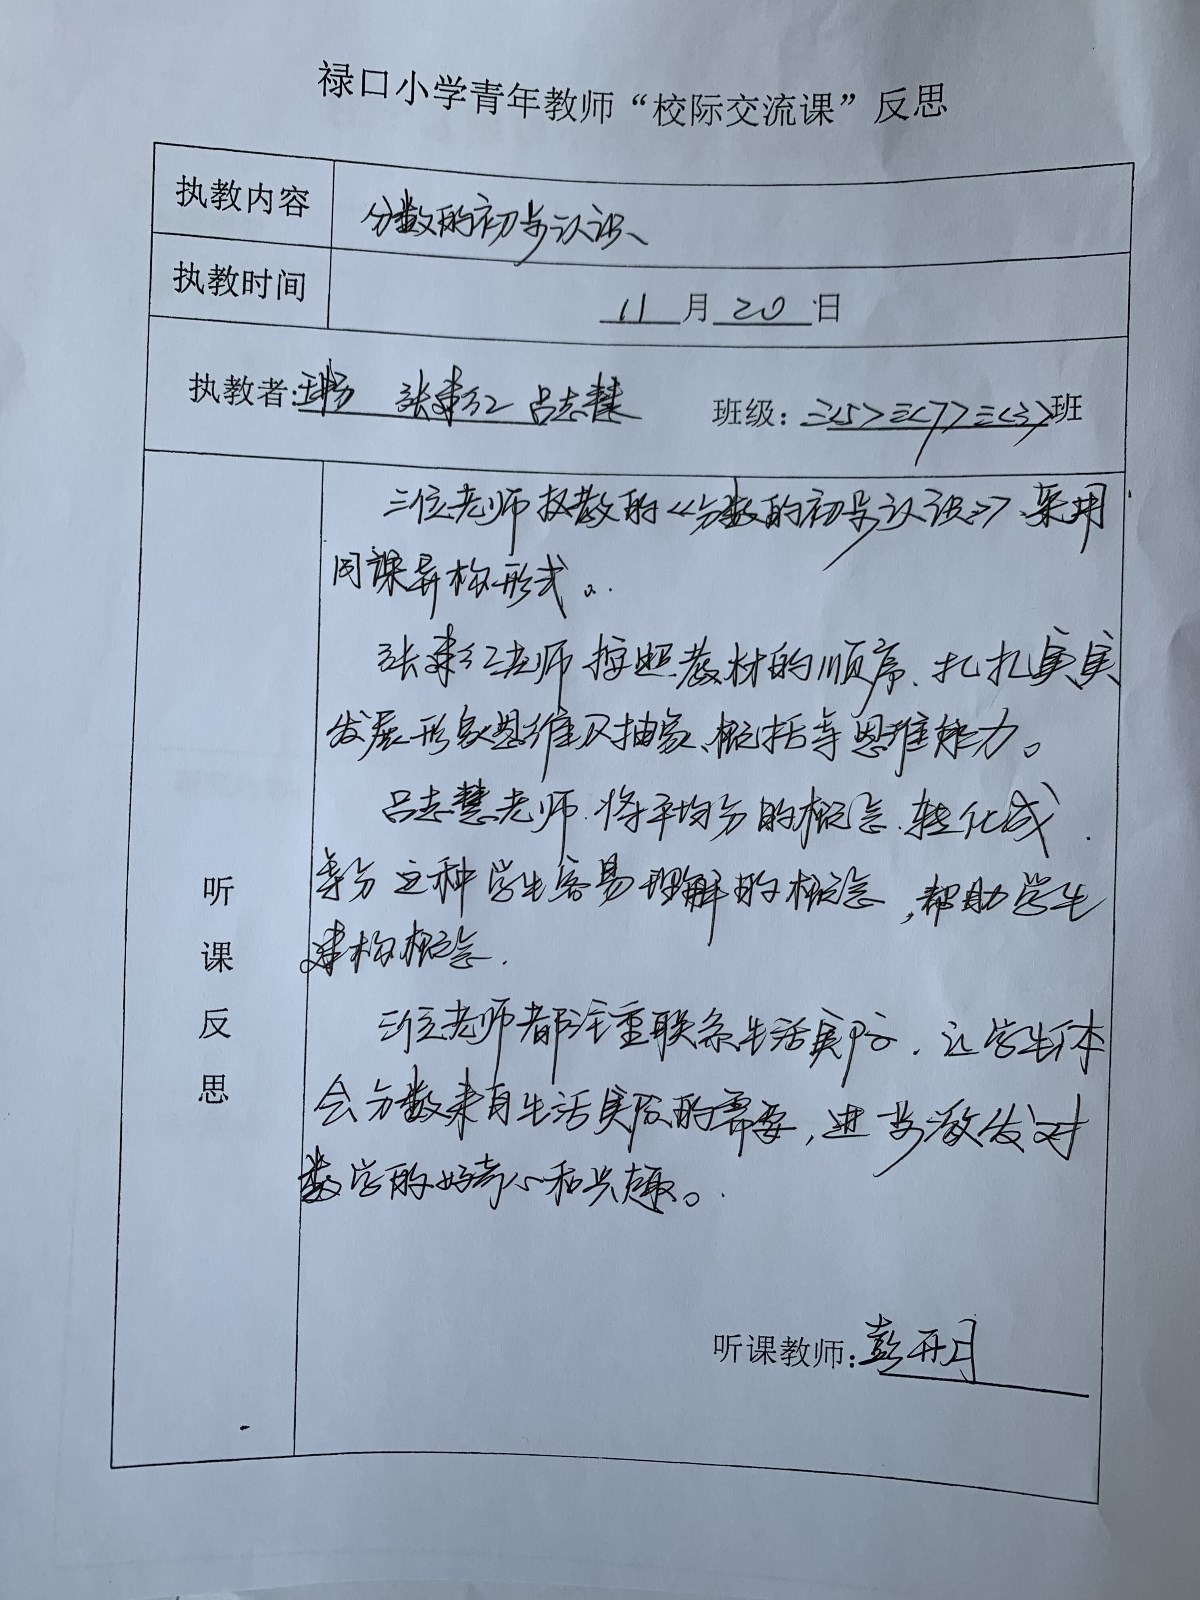 禄口小学青年教师“校际交流课”反思
执教内容
分数的初步认识
执教时间
11月20日
执教者: 张来红 吕志慧 班级: 三<5>三<7>三<3>班
听课反思
三位老师执教的《分数的初步认识》、采用
同课异构形式。
张来红老师按照教材的顺序、扎扎实实
发展形象思维及抽象、概括等思维能力。
吕志慧老师.将平均分的概念.转化成
等分这种学生容易理解的概念,帮助学生
建构概念.
三位老师都注重联系生活实际.让学生体
会分数来自生活实际的需要,进步激发对
数学的好奇心和兴趣。
听课教师:彭开月